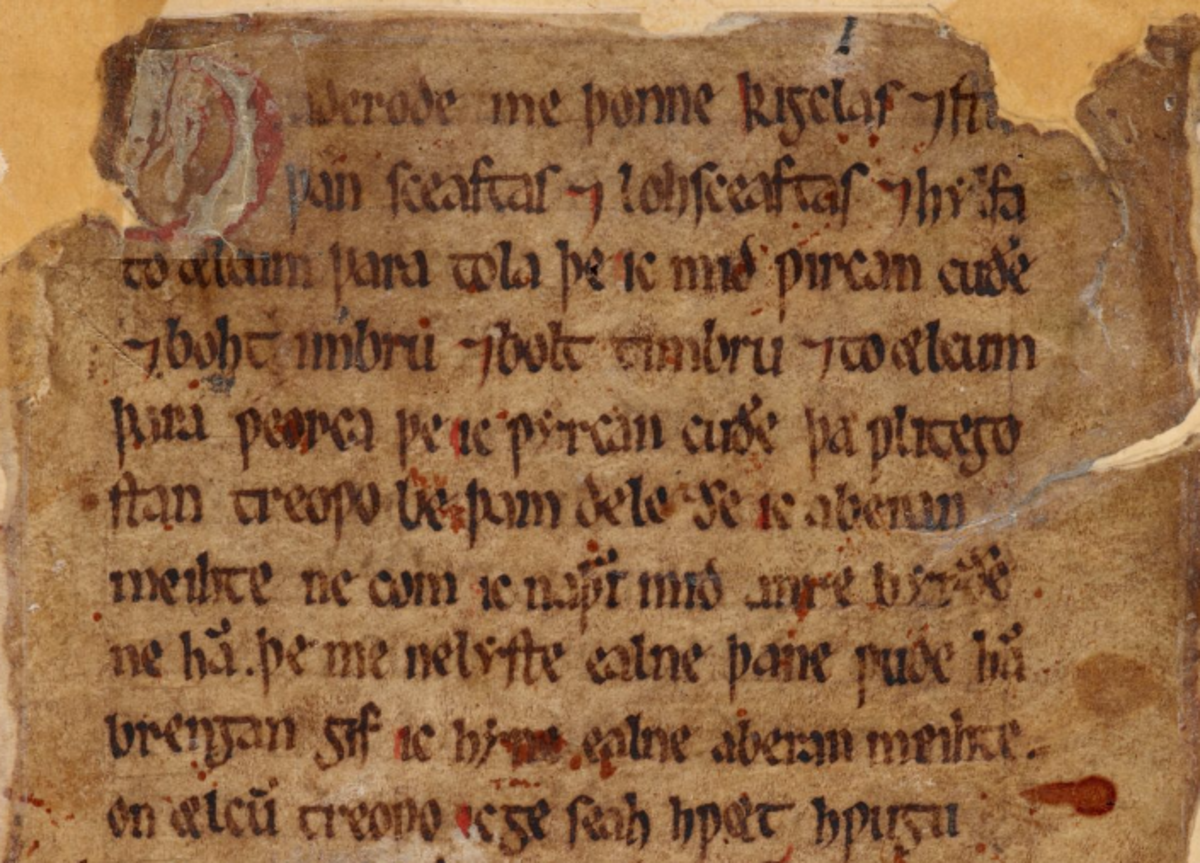 derode me þonne kigclas ⁊ stu
þan sceaftas ⁊ lohsceaftas ⁊ hylfa
to ælcum þara tola þe ic mid ƿircan cuðe
⁊ bohtimbrū ⁊ bolt timbrū ⁊ to ælcum
þara ƿeorca þe ic ƿyrcan cuðe þa ƿlitego
stan treoƿo be þam dele ðe ic aberan
meihte ne com ic naþer mid anre byrðene
ne hā. þe me ne lyste ealne þane ƿude hā
brengan gif ic hyne ealne aberan meihte.
on ælcū treoƿo ic ge seah hƿæt hƿugu